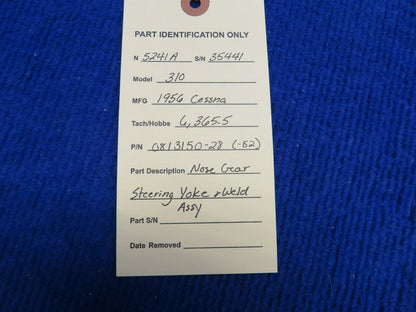 PART IDENTIFICATION ONLY
N 5241A S/N 35441
Model 310
MFG 1956 Cessna
Tach/Hobbs 6,365.5
P/N 0813150-28 (-52)
Part Description Nose Gear
Steering Yoke & Weld
Assy
Part S/N
Date Removed